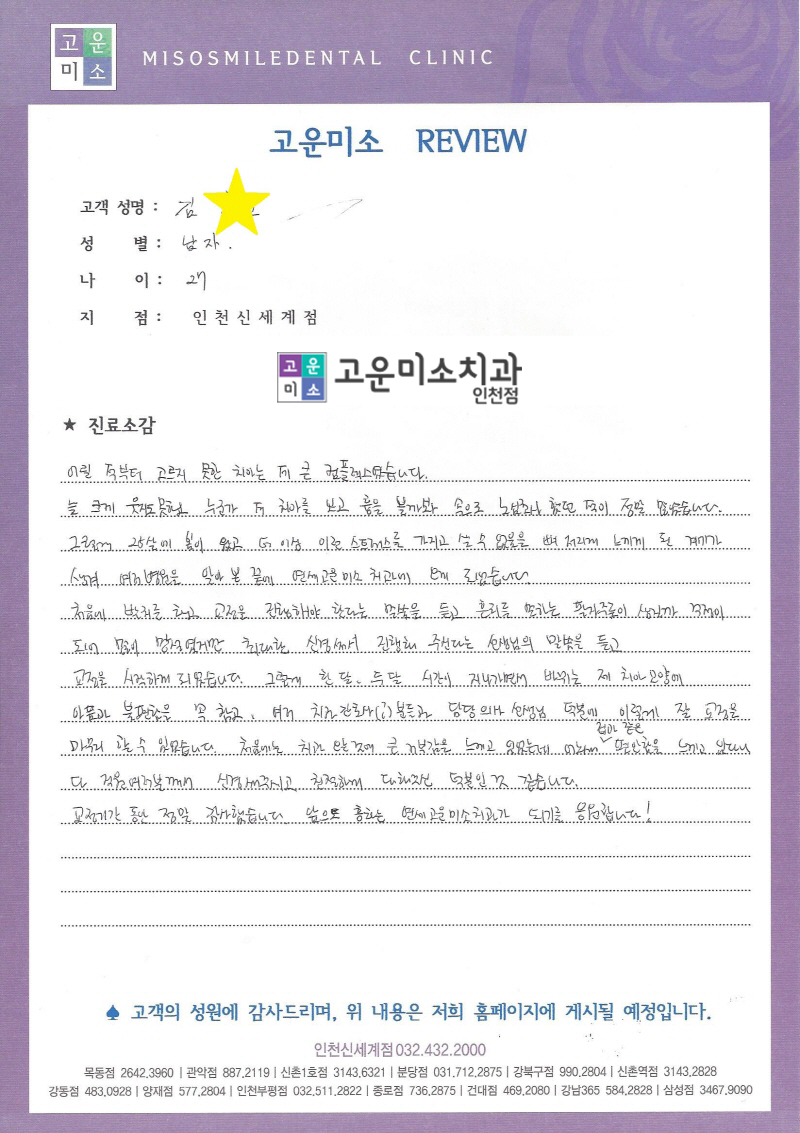 고운
미소
MISOSMILEDENTAL CLINIC
고운미소 REVIEW
고객 성명 : 김
성 별 : 남자.
나 이 : 27
지 점 : 인천신세계점
고운
미소
고운미소치과
인천점
★ 진료소감
어릴 적부터 고르지 못한 치아는 제 큰 컴플렉스였습니다.
늘 크게 웃지도못하고 누군가 제 치아를 보고 흉을 볼까봐 속으로 노심초사 했던 적이 정말 많았습니다.
그러던 25살에 봄이 왔고 더 이상 이런 스트레스를 가지고 살 수 없음을 뼈 저리게 느끼게 된 계기가
생겨 여러병원을 알아 본 끝에 연세고운미소 치과에 오게 되었습니다.
처음에 발치를 하고 교정을 진행해야 한다는 말씀을 듣고 흔히들 말하는 팔자주름이 생길까 걱정이
되어 많이 망설였지만 최대한 신경써서 진행해 주신다는 선생님의 말씀을 듣고
교정을 시작하게 되었습니다. 그렇게 한 달, 두 달 시간이 지나가면서 바뀌는 제 치아모양에
아픔과 불편함을 꾹 참고, 여러 치과간호사(?)분들과 담당의사 선생님 덕분에 이렇게 잘 교정을
마무리 할 수 있었습니다. 처음에는 치과 오는것에 큰 거부감을 느끼고 있었는데 이제는 집과 같은 편안함을 느끼고 있으니
다 직원여러분께서 신경써주시고 친절하게 대해주신 덕분인 것 같습니다.
교정기간 동안 정말 감사했습니다. 앞으로 흥하는 연세고운미소치과가 되기를 응원합니다!
♠ 고객의 성원에 감사드리며, 위 내용은 저희 홈페이지에 게시될 예정입니다.
인천신세계점 032.432.2000
목동점 2642.3960 | 관악점 887.2119 | 신촌1호점 3143.6321 | 분당점 031.712.2875 | 강북구점 990.2804 | 신촌역점 3143.2828
강동점 483.0928 | 양재점 577.2804 | 인천부평점 032.511.2822 | 종로점 736.2875 | 건대점 469.2080 | 강남365 584.2828 | 삼성점 3467.9090